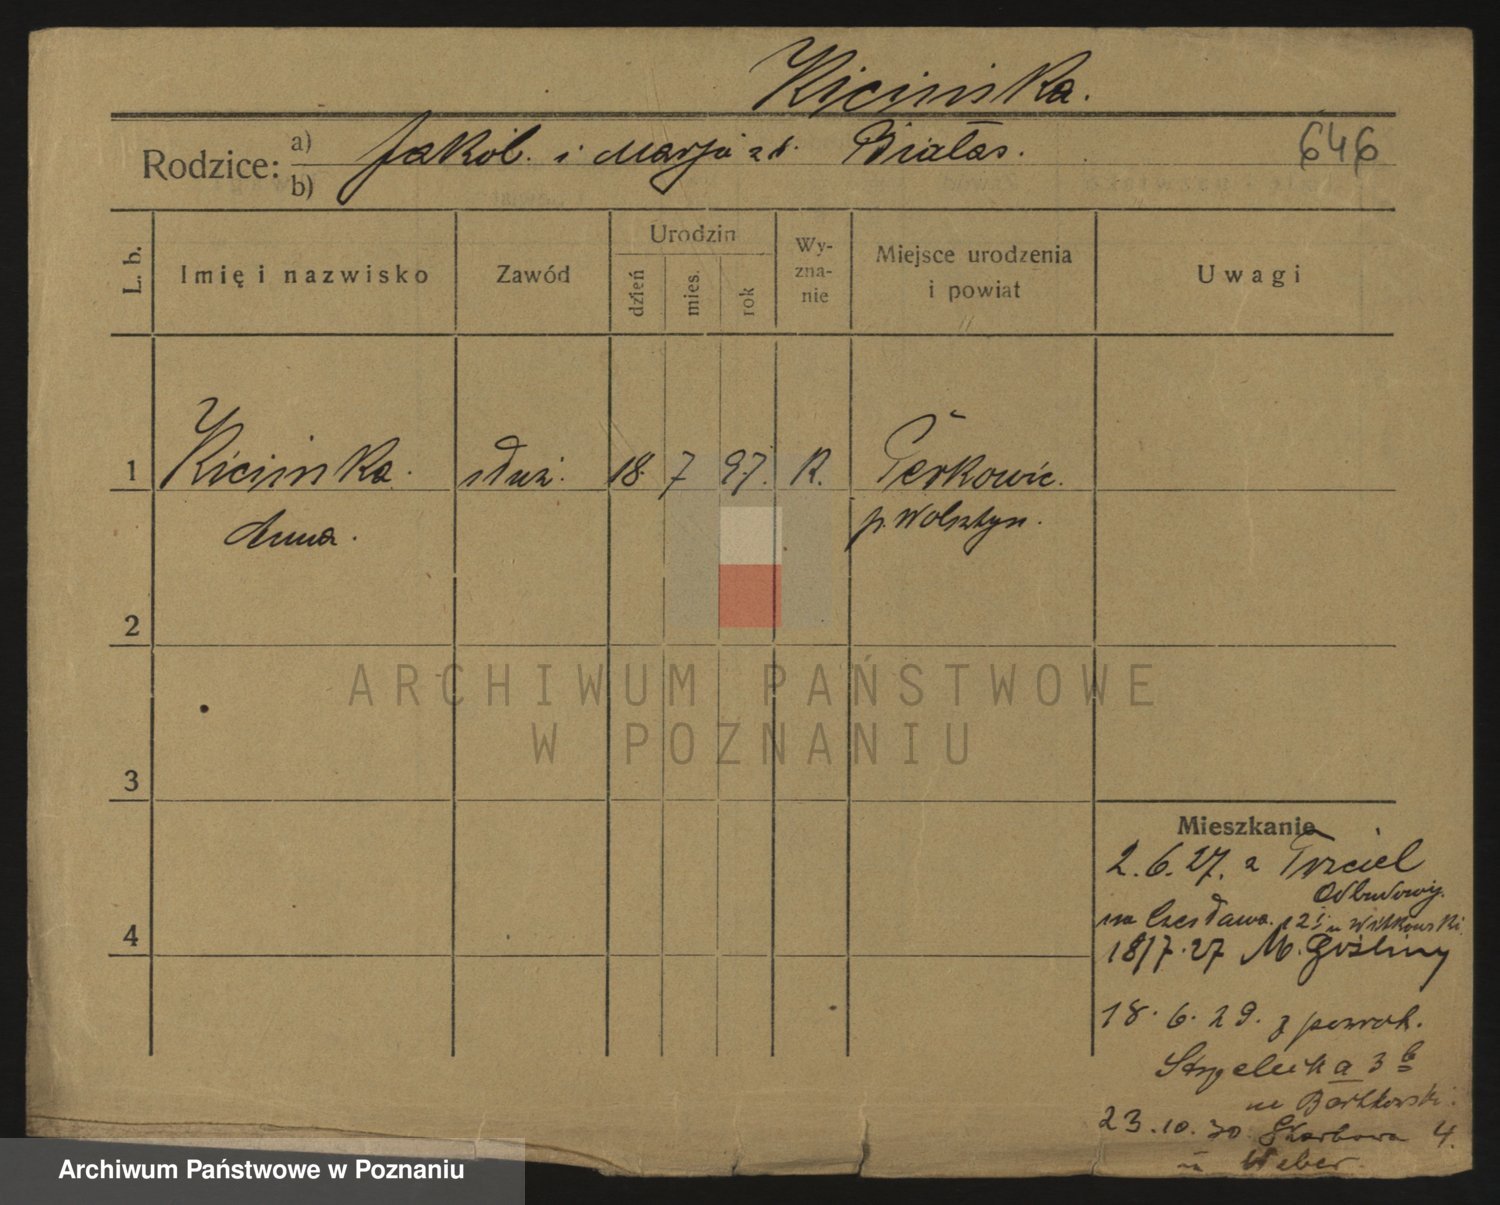 Kicińska.
646
Rodzice: a) Jakób. i Marja zd. Białas.
b)
L. b. Imię i nazwisko Zawód Urodzin dzień mies. rok Wyznanie Miejsce urodzenia i powiat Uwagi
1 Kicińska. służ. 18. 7 97. R. Perkowic.
Anna. p. Wolsztyn.
2
ARCHIWUM PAŃSTWOWE
W POZNANIU
3
Mieszkanie
2.6.27. z Trzciel
Odbudowy.
na Czesława. 12 I u Witkowski.
4
18/7.27 M. Gośliny
18.6.29. z powrot.
Strzelecka 3 b
u Bartkowski.
23.10.30 Skarbowa 4.
u Weber.
Archiwum Państwowe w Poznaniu